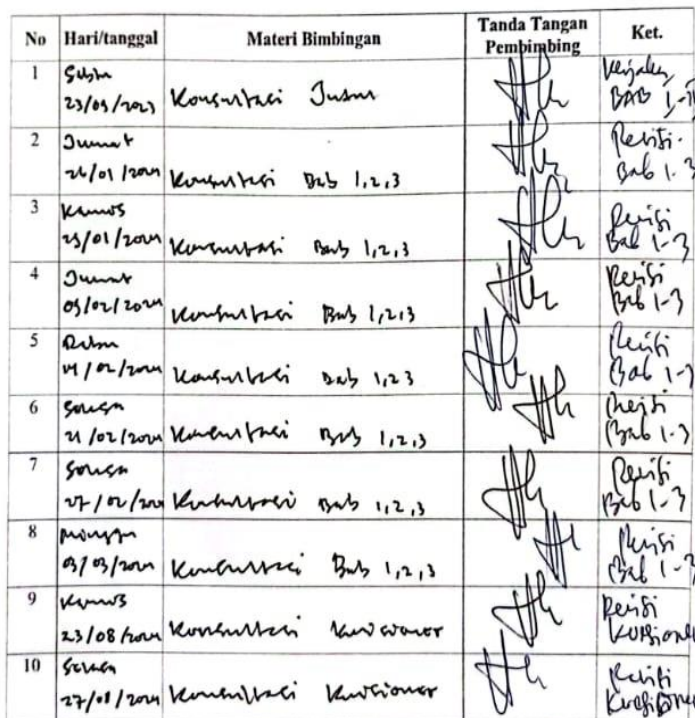 No Hari/tanggal Materi Bimbingan Tanda Tangan Pembimbing Ket.
1 Sabtu
23/09/2023 Konsultasi Judul BAB 1-3
2 Jumat
26/01/2024 Konsultasi Bab 1,2,3 Revisi Bab 1-3
3 Kamis
25/01/2024 Konsultasi Bab 1,2,3 Revisi Bab 1-3
4 Jumat
09/02/2024 Konsultasi Bab 1,2,3 Revisi Bab 1-3
5 Rabu
14/02/2024 Konsultasi Bab 1,2 3 Revisi Bab 1-3
6 Selasa
21/02/2024 Konsultasi Bab 1,2,3 Revisi Bab 1-3
7 Selasa
27/02/2024 Konsultasi Bab 1,2,3 Revisi Bab 1-3
8 Minggu
03/03/2024 Konsultasi Bab 1,2,3 Revisi Bab 1-3
9 Kamis
23/08/2024 Konsultasi Kuisioner Revisi Kuisioner
10 Selasa
27/08/2024 Konsultasi Kuisioner Revisi Kuisioner